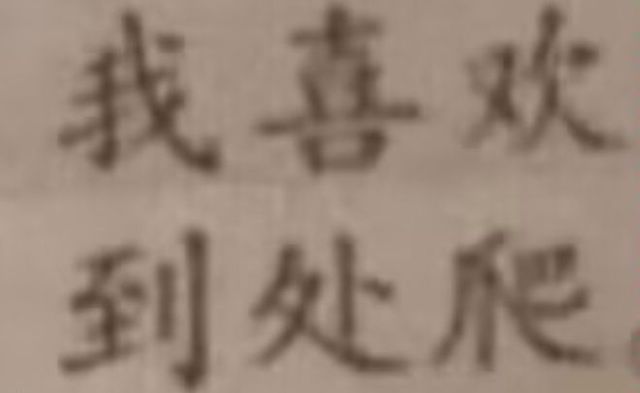 我喜欢
到处爬